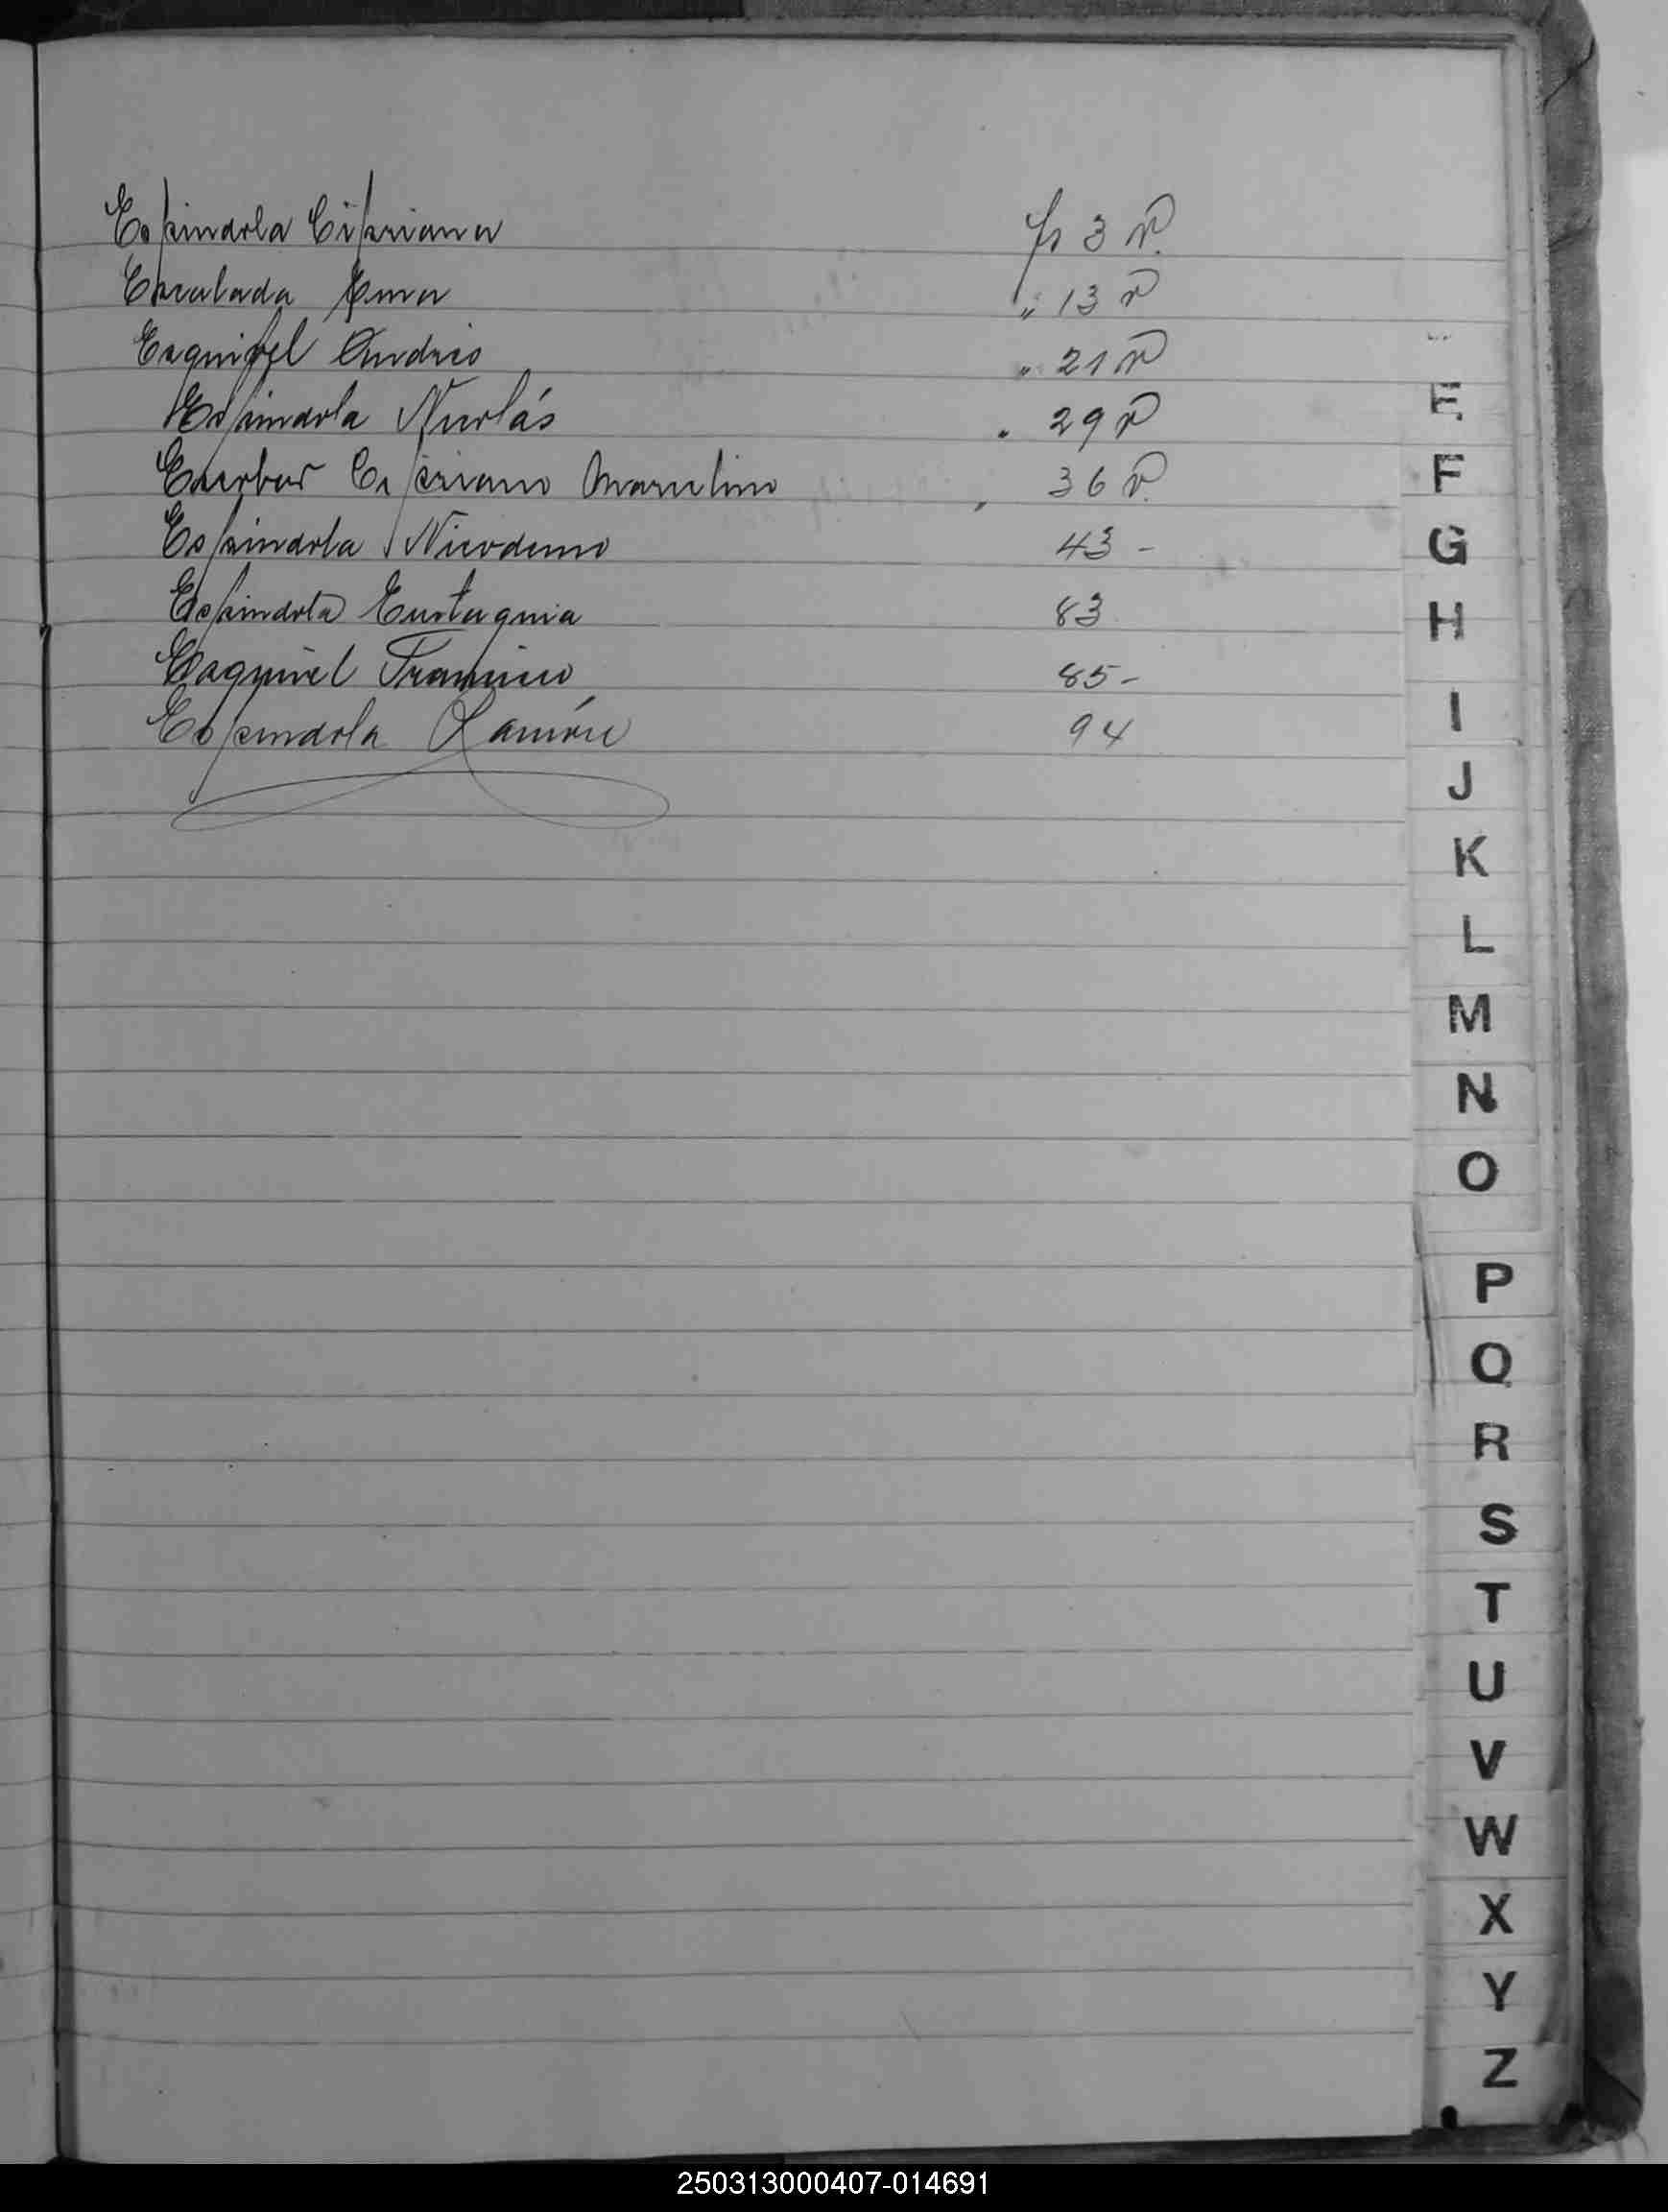 Espindola Cipriana fs 3 v.
Escalada Ema " 13 v
Esquivel Andres " 21 v
Espindola Nicolás " 29 v
Escobar Cipriano Marcelino " 36 v.
Espindola Nicodemo 43 -
Espindola Eustaquia 83
Esquivel Francisco 85 -
Espindola Ramón 94
E
F
G
H
I
J
K
L
M
N
O
P
Q
R
S
T
U
V
W
X
Y
Z
250313000407-014691